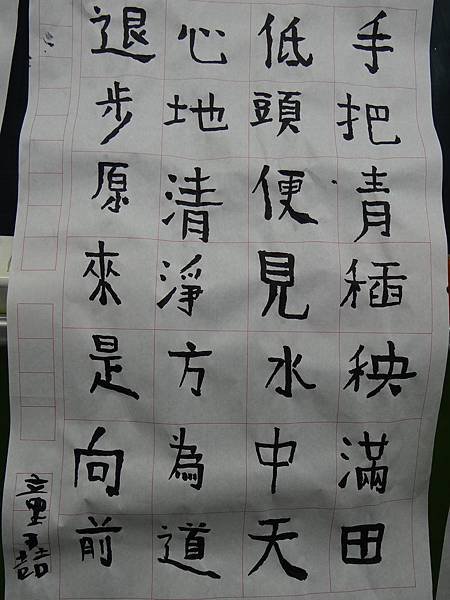 手把青稻秧滿田
低頭便見水中天
心地清淨方為道
退步原來是向前
童喆